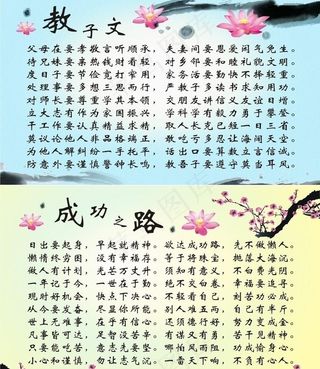 教子文
父母在要孝敬言听顺承，夫妻间要恩爱闲气免生。
待兄妹要亲热钱财看轻，对乡邻要和睦礼貌文明。
度日子要节俭宽打窄用，居家务要勤快不将轻重。
处理事要多想三思而行，严教子多读书求知用功。
对师长要尊重学其本领，交朋友讲信义友谊日增。
立大志有作为家国振兴，学科学有毅力勇于攀登。
干工作要认真精益求精，求长久已短一日三省。
莫议论他人非品格端正，敢吃亏多忍让海阔天空。
为他人解纠纷一手托平，话出口要算数立言信诚。
防意外要谨慎警钟长鸣，教吾子要遵守莫当耳风。
成功之路
日出要起身，早起就精神。欲达成功路，先不做懒人。
懒惰穷困生，没有幸福存。等于将珠宝，抛落大海沉。
做人有计划，光苦万丈升。须知有意义，不白费光阴。
一年记于今，一世在于勤。绝不交白卷，幸福要追寻。
现时好机会，快点下决心。不轻看自己，刻苦功必成。
从今要发奋，尽显你所能。别人难五两，自己有半斤。
世上无难事，在乎有信心。还须德行好，努力变成金。
凡事皆可达，足智没苦辛。有谋又有勇，苦干定翻身。
只要能吃苦，意志先要坚。哪怕风和雨，功成愉身心。
小心和谨慎，勿让志气沉。一番天下响，不负有心人。